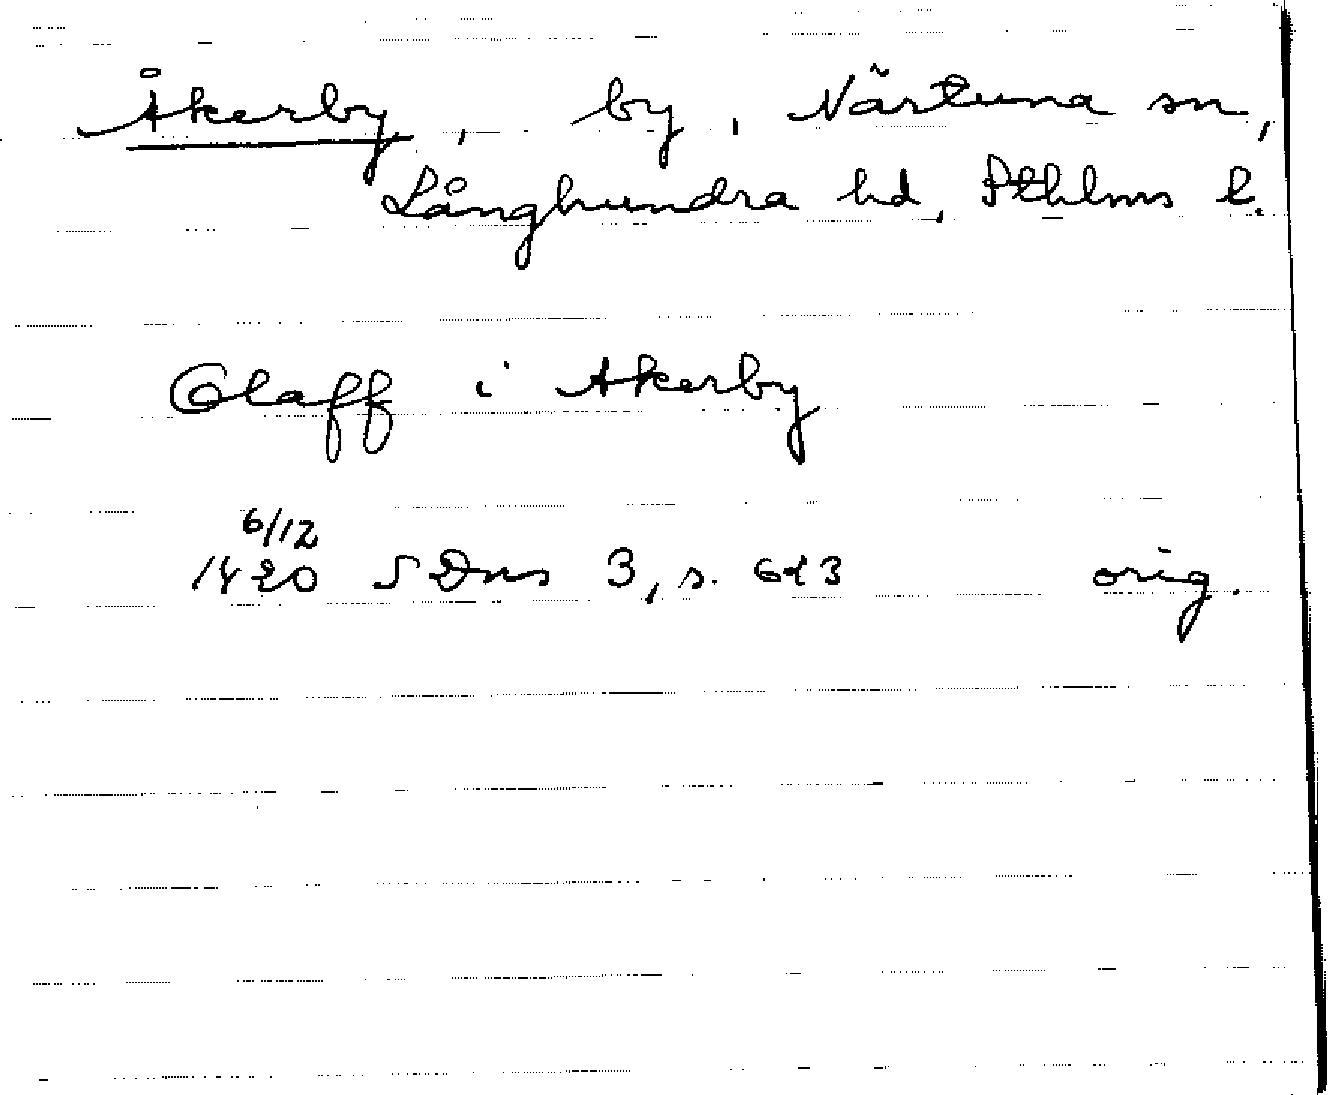 Åkerby, by, Närtuna sn,
Långhundra hd, Sthlms l.
Olaff i Akerby
6/12
1420 SDns 3, s. 643 orig.